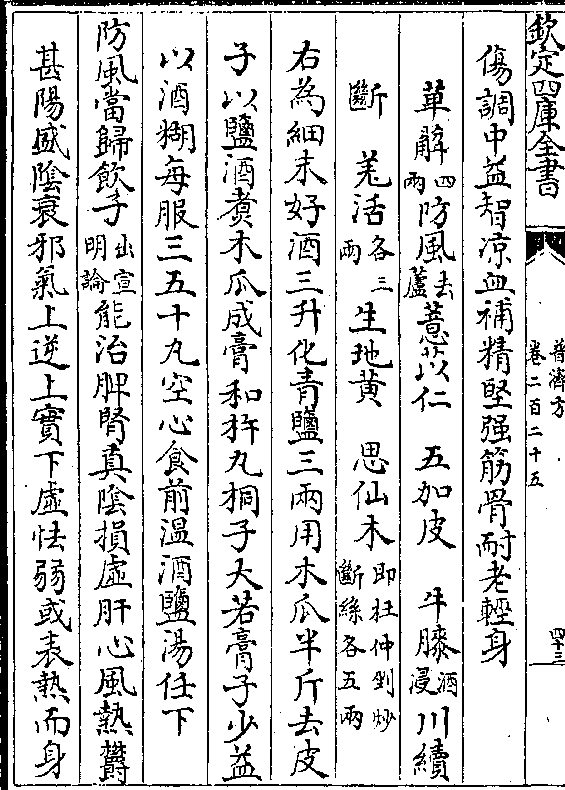 欽定四庫全書
普濟方
卷二百二十五
四十三
傷調中益智凉血補精堅强筋骨耐老輕身
萆薢四兩防風去蘆薏苡仁 五加皮 牛膝酒浸川續
斷 羌活各三兩生地黄 思仙木即杜仲剉炒斷絲各五兩
右為細末好酒三升化青鹽三兩用木瓜半斤去皮
子以鹽酒煑木瓜成膏和杵丸桐子大若膏子少益
以酒糊每服三五十丸空心食前温酒鹽湯任下
防風當歸飲子出宣明論能治脾腎真陰損虛肝心風熱鬱
甚陽盛陰衰邪氣上逆上實下虛怯弱或表熱而身